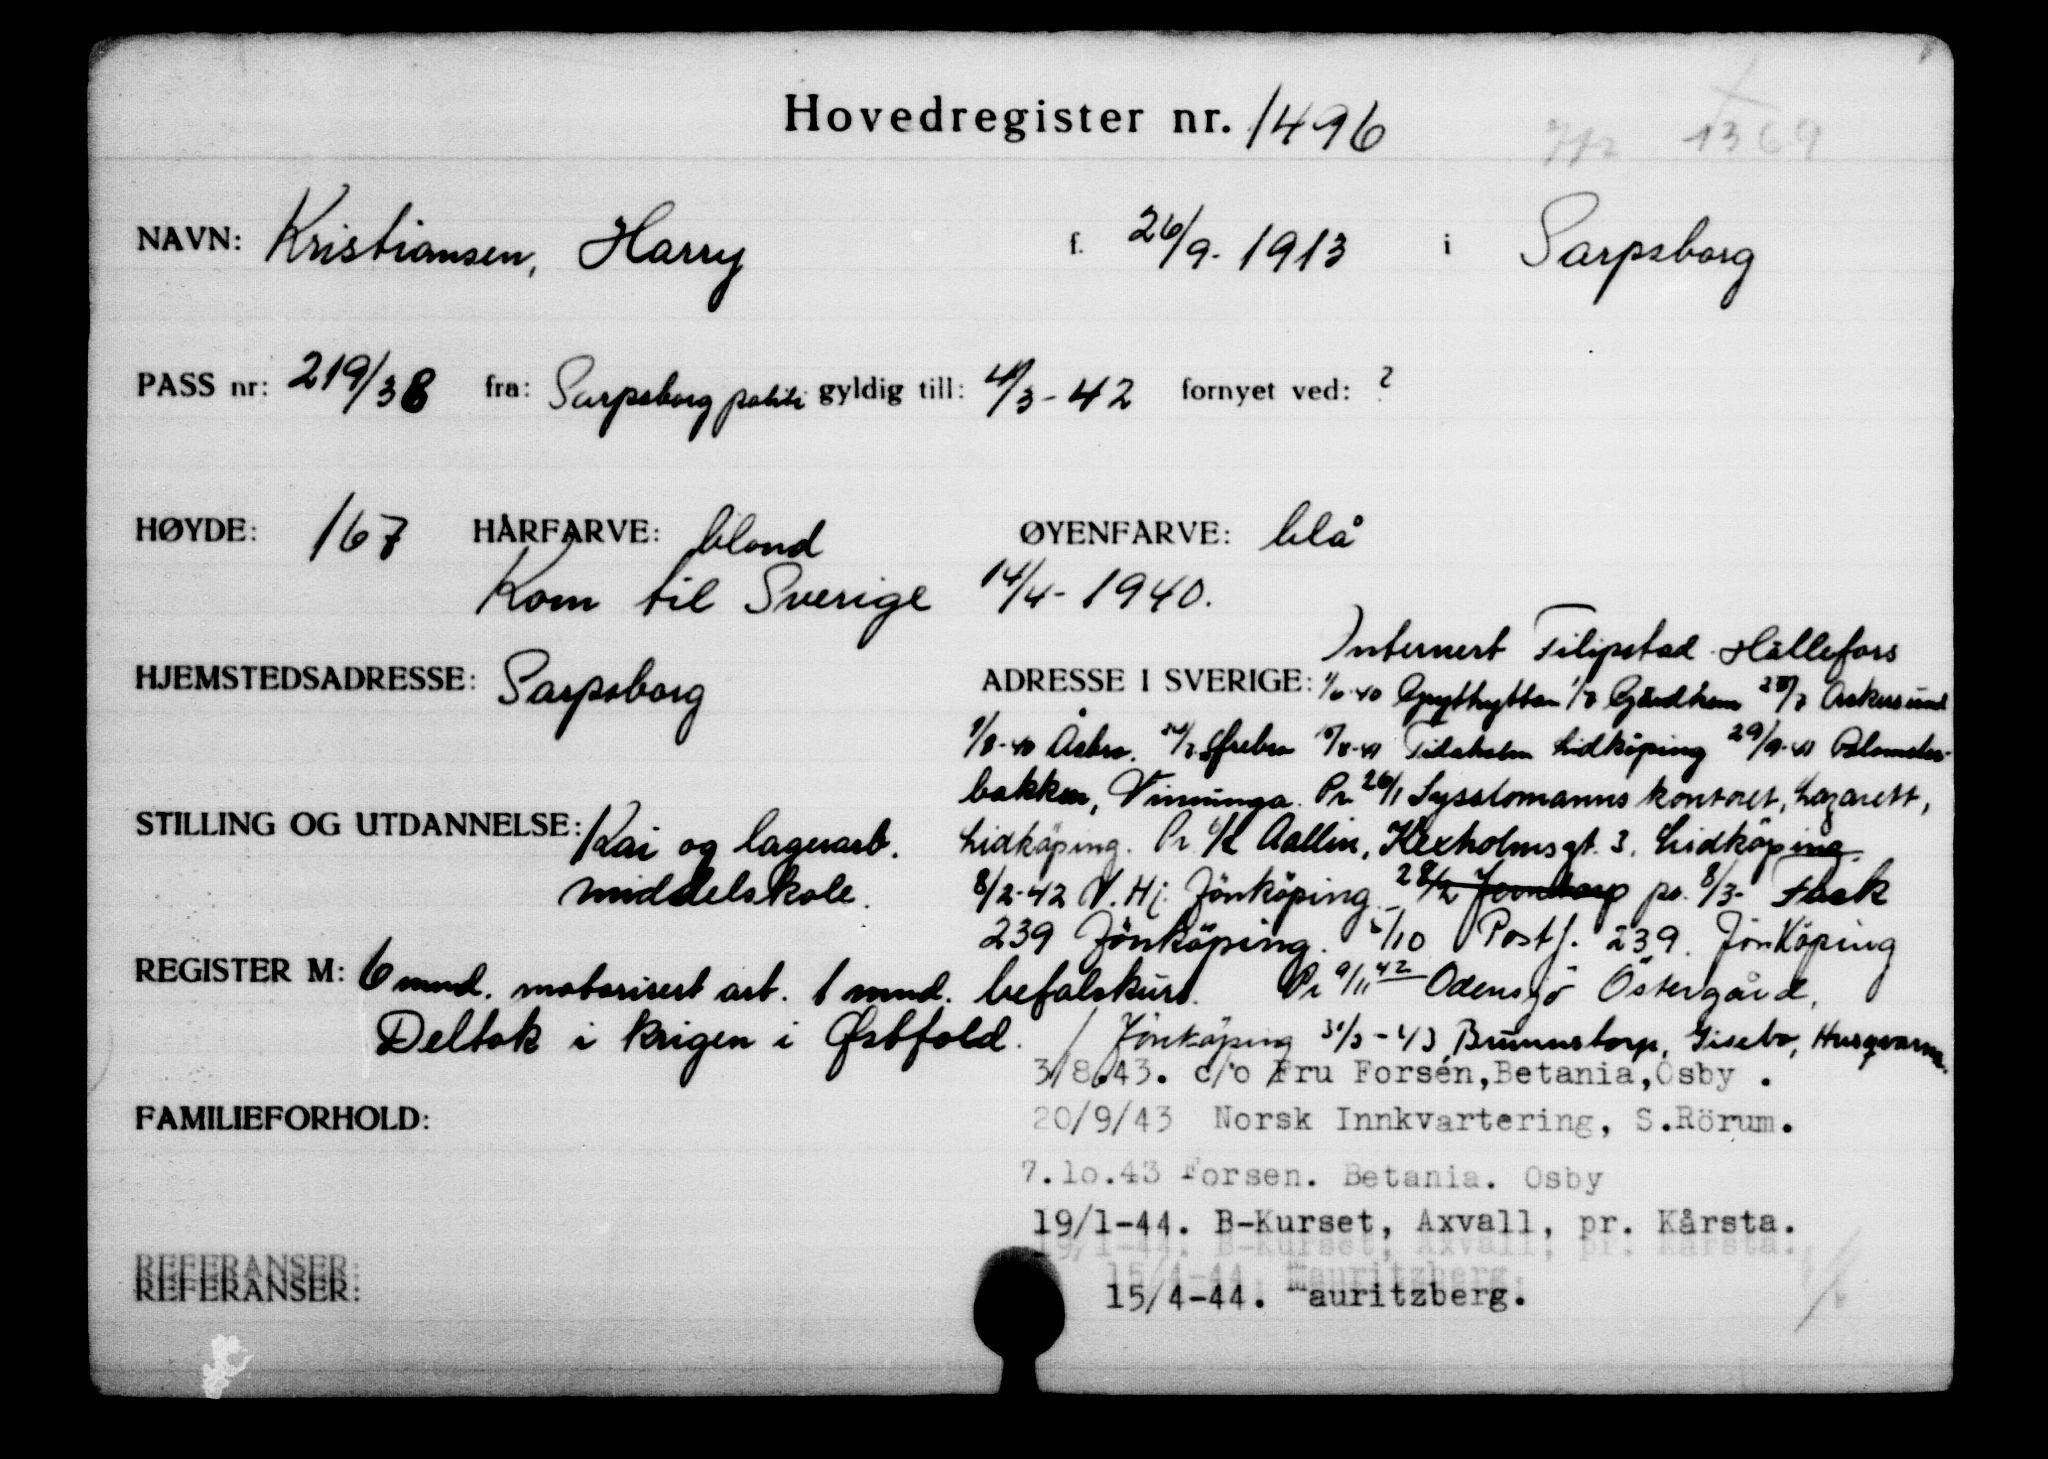 Hovedregister nr. 1496
1369
NAVN: Kristiansen, Harry f. 26/9-1913 i Sarpsborg
PASS nr: 219/38 fra: Sarpsborg politi gyldig till: 4/3-42 fornyet ved: ?
HØYDE: 167 HÅRFARVE: blond ØYENFARVE: blå
Kom til Sverige 14/4-1940.
Internert Filipstad Hällefors
HJEMSTEDSADRESSE: Sarpsborg ADRESSE I SVERIGE: 1/6-40 Grythyttan Gårdhem Askersund
Åsbro. Ørebro Tidaholm Lidköping 29/9-41 Blomster-
bakken, Vinninga. Pr. 26/1 Sysslomanns kontoret, Lazarett,
STILLING OG UTDANNELSE: Kai og lagerarb. Lidköping. Pr. Aallin, Kexholmsgt. 3, Lidköping.
middelskole. 8/2-42 V. Hj. Jönköping pr. 8/3- Fack
239 Jönköping. 5/10 Postf. 239. Jönköping
REGISTER M: 6 mnd. motorisert art. 1 mnd. befalskurs. Pr 9/11 42 Odensjö Östergård,
Deltok i krigen i Østfold. Jönköping 31/3-43 Brunnstorp, Gisebo, Husqvarna.
3/8.43. c/o Fru Forsén, Betania, Osby .
FAMILIEFORHOLD: 20/9/43 Norsk Innkvartering, S.Rörum.
7.10.43 Forsen. Betania. Osby
19/1-44. B-Kurset, Axvall, pr. Kårsta.
19/1-44. B-Kurset, Axvall, pr. Kårsta.
REFERANSER: 15/4-44. Mauritzberg.
REFERANSER: 15/4-44. Mauritzberg.